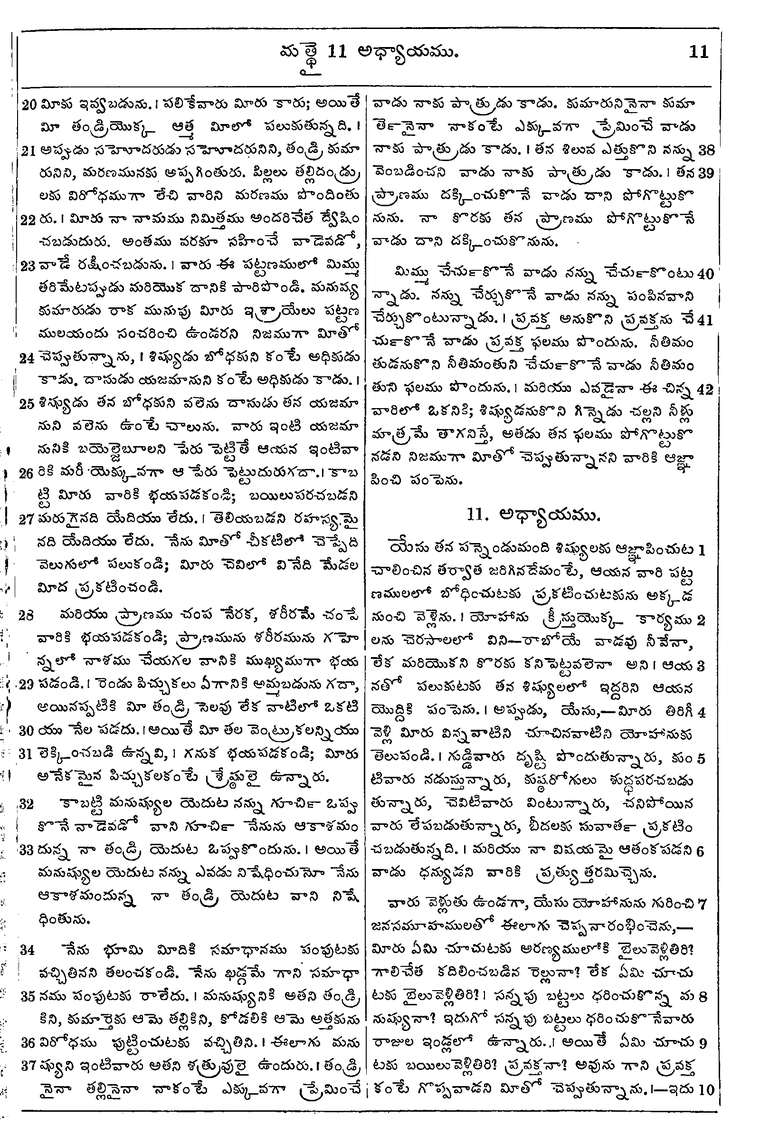 మత్తై 11 అధ్యాయము. 11
20 మీకు ఇవ్వబడును. । పలికేవారు మీరు కారు; అయితే
మీ తండ్రియొక్క ఆత్మ మీలో పలుకుతున్నది. ।
21 అప్పుడు సహెూదరుడు సహెూదరునిని, తండ్రి కుమా
రునిని, మరణమునకు అప్పగింతురు. పిల్లలు తల్లిదండ్రు
లకు విరోధముగా లేచి వారిని మరణము పొందింతు
22 రు. । మీరు నా నామము నిమిత్తము అందరిచేత ద్వేషిం
చబడుదురు. అంతము వరకూ సహించే వాడెవడో,
23 వాడే రక్షించబడును. । వారు ఈ పట్టణములో మిమ్ము
తరిమేటప్పుడు మరియొక దానికి పారిపొండి. మనుష్య
కుమారుడు రాక మునుపు మీరు ఇశ్రాయేలు పట్టణ
ములయందు సంచరించి ఉండరని నిజముగా మీతో
24 చెప్పుతున్నాను, । శిష్యుడు బోధకుని కంటే అధికుడు
కాడు. దాసుడు యజమానుని కంటే అధికుడు కాడు. ।
25 శిష్యుడు తన బోధకుని వలెను దాసుడు తన యజమా
నుని వలెను ఉంటే చాలును. వారు ఇంటి యజమా
నునికి బయెల్జెబూలని పేరు పెట్టితే ఆయన ఇంటివా
26 రికి మరీ యెక్కువగా ఆ పేరు పెట్టుదురుగదా. । కాబ
ట్టి మీరు వారికి భయపడకండి; బయిలుపరచబడని
27 మరుగైనది యేదియు లేదు. । తెలియబడని రహస్యమై
నది యేదియు లేదు. నేను మీతో చీకటిలో చెప్పేది
వెలుగులో పలుకండి; మీరు చెవిలో వినేది మేడల
మీద ప్రకటించండి.
28 మరియు ప్రాణము చంప నేరక, శరీరమే చంపే
వారికి భయపడకండి; ప్రాణమును శరీరమును గహె
న్నలో నాశము చేయగల వానికి ముఖ్యముగా భయ
29 పడండి. । రెండు పిచ్చుకలు ఏగానికి అమ్మబడును గదా,
అయినప్పటికి మీ తండ్రి సెలవు లేక వాటిలో ఒకటి
30 యు నేల పడదు. । అయితే మీ తల వెంట్రుకలన్నియు
31 లెక్కించబడి ఉన్నవి, । గనుక భయపడకండి; మీరు
అనేకమైన పిచ్చుకలకంటే శ్రేష్ఠులై ఉన్నారు.
32 కాబట్టి మనుష్యుల యెదుట నన్ను గూచిఁ ఒప్పు
కొనే వాడెవడో వాని గూచిఁ నేనును ఆకాశమం
33 దున్న నా తండ్రి యెదుట ఒప్పుకొందును. । అయితే
మనుష్యుల యెదుట నన్ను ఎవడు నిషేధించునో నేను
ఆకాశమందున్న నా తండ్రి యెదుట వాని నిషే
ధింతును.
34 నేను భూమి మీదికి సమాధానము పంపుటకు
వచ్చితినని తలంచకండి. నేను ఖడ్గమే గాని సమాధా
35 నము పంపుటకు రాలేదు. । మనుష్యునికి అతని తండ్రి
కిని, కుమార్తెకు ఆమె తల్లికిని, కోడలికి ఆమె అత్తకును
36 విరోధము పుట్టించుటకు వచ్చితిని. । ఈలాగు మను
37 ష్యుని ఇంటివారు అతని శత్రువులై ఉందురు. । తండ్రి
నైనా తల్లినైనా నాకంటే ఎక్కువగా ప్రేమించే
వాడు నాకు పాత్రుడు కాడు. కుమారునినైనా కుమా
తెఁనైనా నాకంటే ఎక్కువగా ప్రేమించే వాడు
నాకు పాత్రుడు కాడు. । తన శిలువ ఎత్తుకొని నన్ను 38
వెంబడించని వాడు నాకు పాత్రుడు కాడు. । తన 39
ప్రాణము దక్కించుకొనే వాడు దాని పోగొట్టుకొ
నును. నా కొరకు తన ప్రాణము పోగొట్టుకొనే
వాడు దాని దక్కించుకొనును.
మిమ్ము చేచుఁకొనే వాడు నన్ను చేచుఁకొంటు 40
న్నాడు. నన్ను చేర్చుకొనే వాడు నన్ను పంపినవాని
చేర్చుకొంటున్నాడు. । ప్రవక్త అనుకొని ప్రవక్తను చే 41
చుఁకొనే వాడు ప్రవక్త ఫలము పొందును. నీతిమం
తుడనుకొని నీతిమంతుని చేచుఁకొనే వాడు నీతిమం
తుని ఫలము పొందును. । మరియు ఎవడైనా ఈ చిన్న 42
వారిలో ఒకనికి; శిష్యుడనుకొని గిన్నెడు చల్లని నీళ్లు
మాత్రమే తాగనిస్తే, అతడు తన ఫలము పోగొట్టుకొ
నడని నిజముగా మీతో చెప్పుతున్నానని వారికి ఆజ్ఞా
పించి పంపెను.
11. అధ్యాయము.
యేసు తన పన్నెండుమంది శిష్యులకు ఆజ్ఞాపించుట 1
చాలించిన తర్వాత జరిగినదేమంటే, ఆయన వారి పట్ట
ణములలో బోధించుటకు ప్రకటించుటకును అక్కడ
నుంచి వెళ్లెను. । యోహాను క్రీస్తుయొక్క కార్యము 2
లను చెరసాలలో విని—రాబోయే వాడవు నీవేనా,
లేక మరియొకని కొరకు కనిపెట్టవలెనా అని । ఆయ 3
నతో పలుకుటకు తన శిష్యులలో ఇద్దరిని ఆయన
యొద్దికి పంపెను. । అప్పుడు, యేసు,—మీరు తిరిగీ 4
వెళ్లి మీరు విన్నవాటిని చూచినవాటిని యోహానుకు
తెలుపండి. । గుడ్డివారు దృష్టి పొందుతున్నారు, కుం 5
టివారు నడుస్తున్నారు, కుష్ఠరోగులు శుద్ధపరచబడు
తున్నారు, చెవిటివారు వింటున్నారు, చనిపోయిన
వారు లేపబడుతున్నారు, బీదలకు సువాతఁ ప్రకటిం
చబడుతున్నది. । మరియు నా విషయమై ఆతంకపడని 6
వాడు ధన్యుడని వారికి ప్రత్యుత్తరమిచ్చెను.
వారు వెళ్లుతు ఉండగా, యేసు యోహానును గురించి 7
జనసమూహములతో ఈలాగు చెప్పనారంభించెను,—
మీరు ఏమి చూచుటకు అరణ్యములోకి బైలువెళ్లితిరి?
గాలిచేత కదిలించబడిన రెల్లునా? లేక ఏమి చూచు
టకు బైలువెళ్లితిరి? । సన్నపు బట్టలు ధరించుకొన్న మ 8
నుష్యునా? ఇదుగో సన్నపు బట్టలు ధరించుకొనేవారు
రాజుల ఇండ్లలో ఉన్నారు. । అయితే ఏమి చూచు 9
టకు బయిలువెళ్లితిరి? ప్రవక్తనా? అవును గాని ప్రవక్త
కంటే గొప్పవాడని మీతో చెప్పుతున్నాను. ।—ఇదు 10